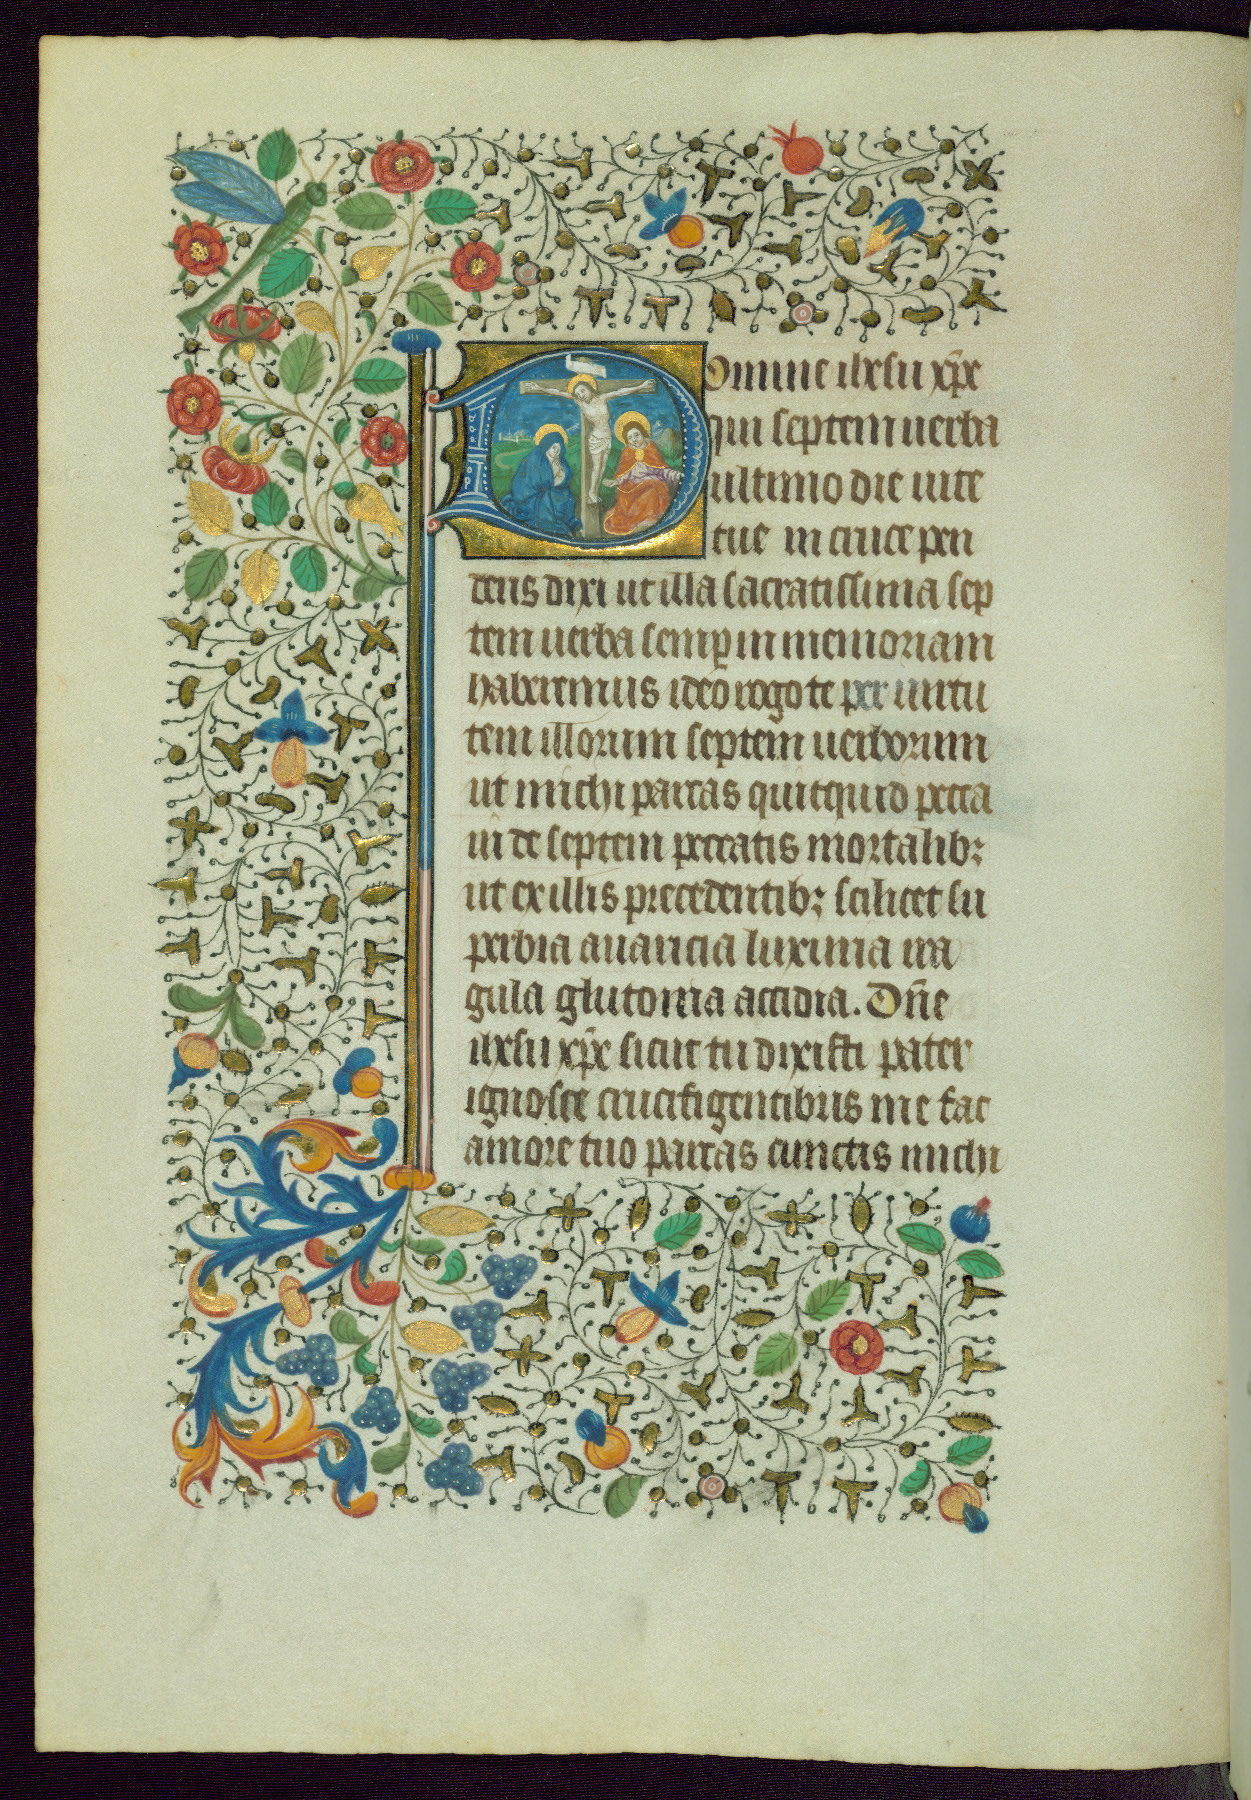 Domine ihesu xp̄e
qui septem uerba
ultimo die uite
tue in cruce pen
dens dixi ut illa sacratissima sep
tem uerba semꝑ in memoriam
haberemus ideo rogo te per uirtu
tem illorum septem uerborum
ut michi parcas quitquid pecca
ui de septem peccatis mortalibꝫ
ut ex illis precedentibꝫ scilicet su
perbia auaricia luxuria ira
gula glutonia accidia. Dn̄e
ihesu xp̄e sicut tu dixisti pater
ignosce crucifigentibus me fac
amore tuo parcas cunctis michi